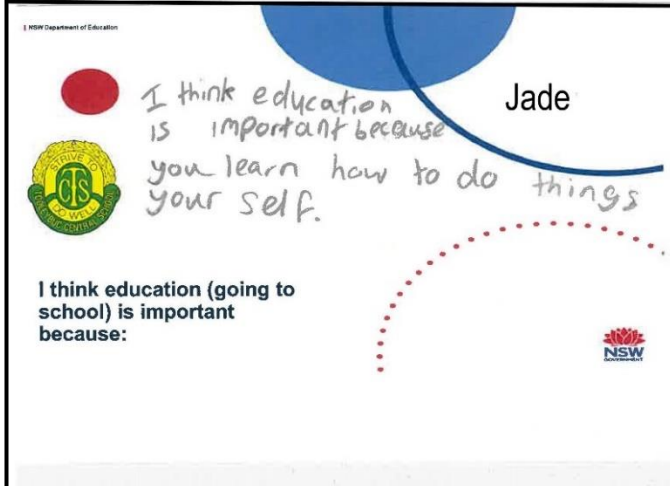 NSW Department of Education
Jade
I think education
is important because
you learn how to do things
your self.
STRIVE TO
CTS
DO WELL
I think education (going to
school) is important
because:
NSW
GOVERNMENT